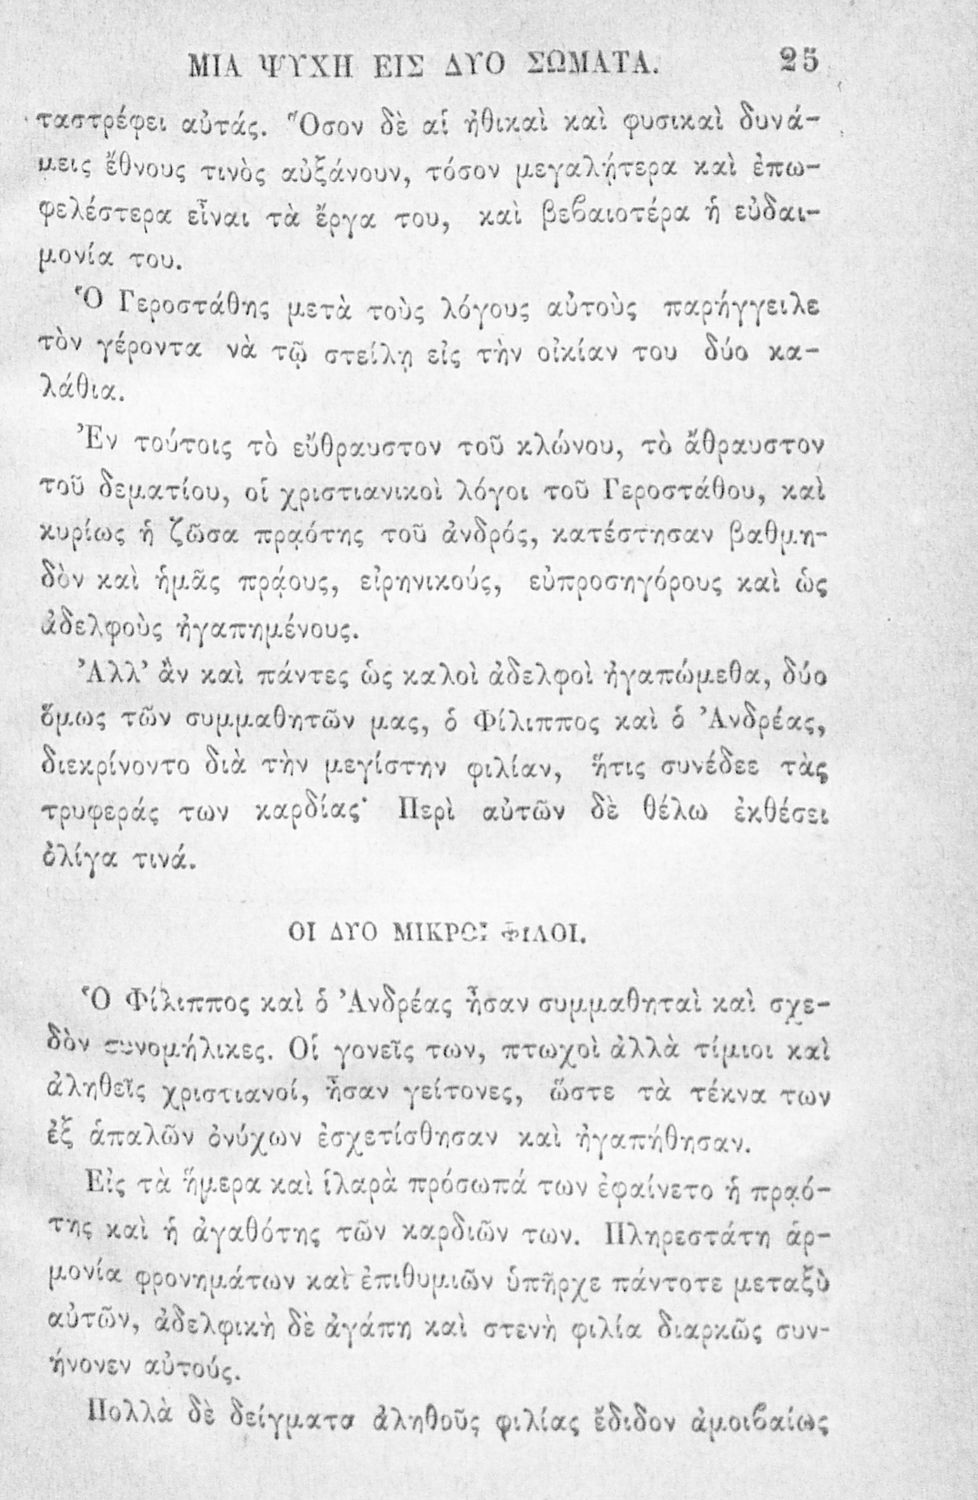 ΜΙΑ ΨΥΧΗ ΕΙΣ ΔΥΟ ΣΩΜΑΤΑ. 25
ταστρέφει αὐτάς. Ὅσον δὲ αἱ ἠθικαὶ καὶ φυσικαὶ δυνά-
μεις ἔθνους τινὸς αὐξάνουν, τόσον μεγαλῄτερα καὶ ἐπω-
φελέστερα εἶναι τὰ ἔργα του, καὶ βεϐαιοτέρα ἡ εὐδαι-
μονία του.
Ὁ Γεροστάθης μετὰ τοὺς λόγους αὐτοὺς παρήγγειλε
τὸν γέροντα νὰ τῷ στείλῃ εἰς τὴν οἰκίαν του δύο κα-
λάθια.
Ἐν τούτοις τὸ εὔθραυστον τοῦ κλώνου, τὸ ἄθραυστον
τοῦ δεματίου, οἱ χριστιανικοὶ λόγοι τοῦ Γεροστάθου, καὶ
κυρίως ἡ ζῶσα πρᾳότης τοῦ ἀνδρός, κατέστησαν βαθμη-
δὸν καὶ ἡμᾶς πρᾴους, εἰρηνικούς, εὐπροσηγόρους καὶ ὡς
ἀδελφοὺς ἠγαπημένους.
Ἀλλ’ ἂν καὶ πάντες ὡς καλοὶ ἀδελφοὶ ἠγαπώμεθα, δύο
ὅμως τῶν συμμαθητῶν μας, ὁ Φίλιππος καὶ ὁ Ἀνδρέας,
διεκρίνοντο διὰ τὴν μεγίστην φιλίαν, ἥτις συνέδεε τὰς
τρυφεράς των καρδίας· Περὶ αὐτῶν δὲ θέλω ἐκθέσει
ὀλίγα τινά.
ΟΙ ΔΥΟ ΜΙΚΡΟΙ ΦΙΛΟΙ.
Ὁ Φίλιππος καὶ ὁ Ἀνδρέας ἦσαν συμμαθηταὶ καὶ σχε-
δὸν συνομήλικες. Οἱ γονεῖς των, πτωχοὶ ἀλλὰ τίμιοι καὶ
ἀληθεῖς χριστιανοί, ἦσαν γείτονες, ὥστε τὰ τέκνα των
ἐξ ἁπαλῶν ὀνύχων ἐσχετίσθησαν καὶ ἠγαπήθησαν.
Εἰς τὰ ἥμερα καὶ ἱλαρὰ πρόσωπά των ἐφαίνετο ἡ πρᾳό-
της καὶ ἡ ἀγαθότης τῶν καρδιῶν των. Πληρεστάτη ἁρ-
μονία φρονημάτων καὶ ἐπιθυμιῶν ὑπῆρχε πάντοτε μεταξὺ
αὐτῶν, ἀδελφικὴ δὲ ἀγάπη καὶ στενὴ φιλία διαρκῶς συν-
ήνονεν αὐτούς.
Πολλὰ δὲ δείγματα ἀληθοῦς φιλίας ἔδιδον ἀμοιϐαίως